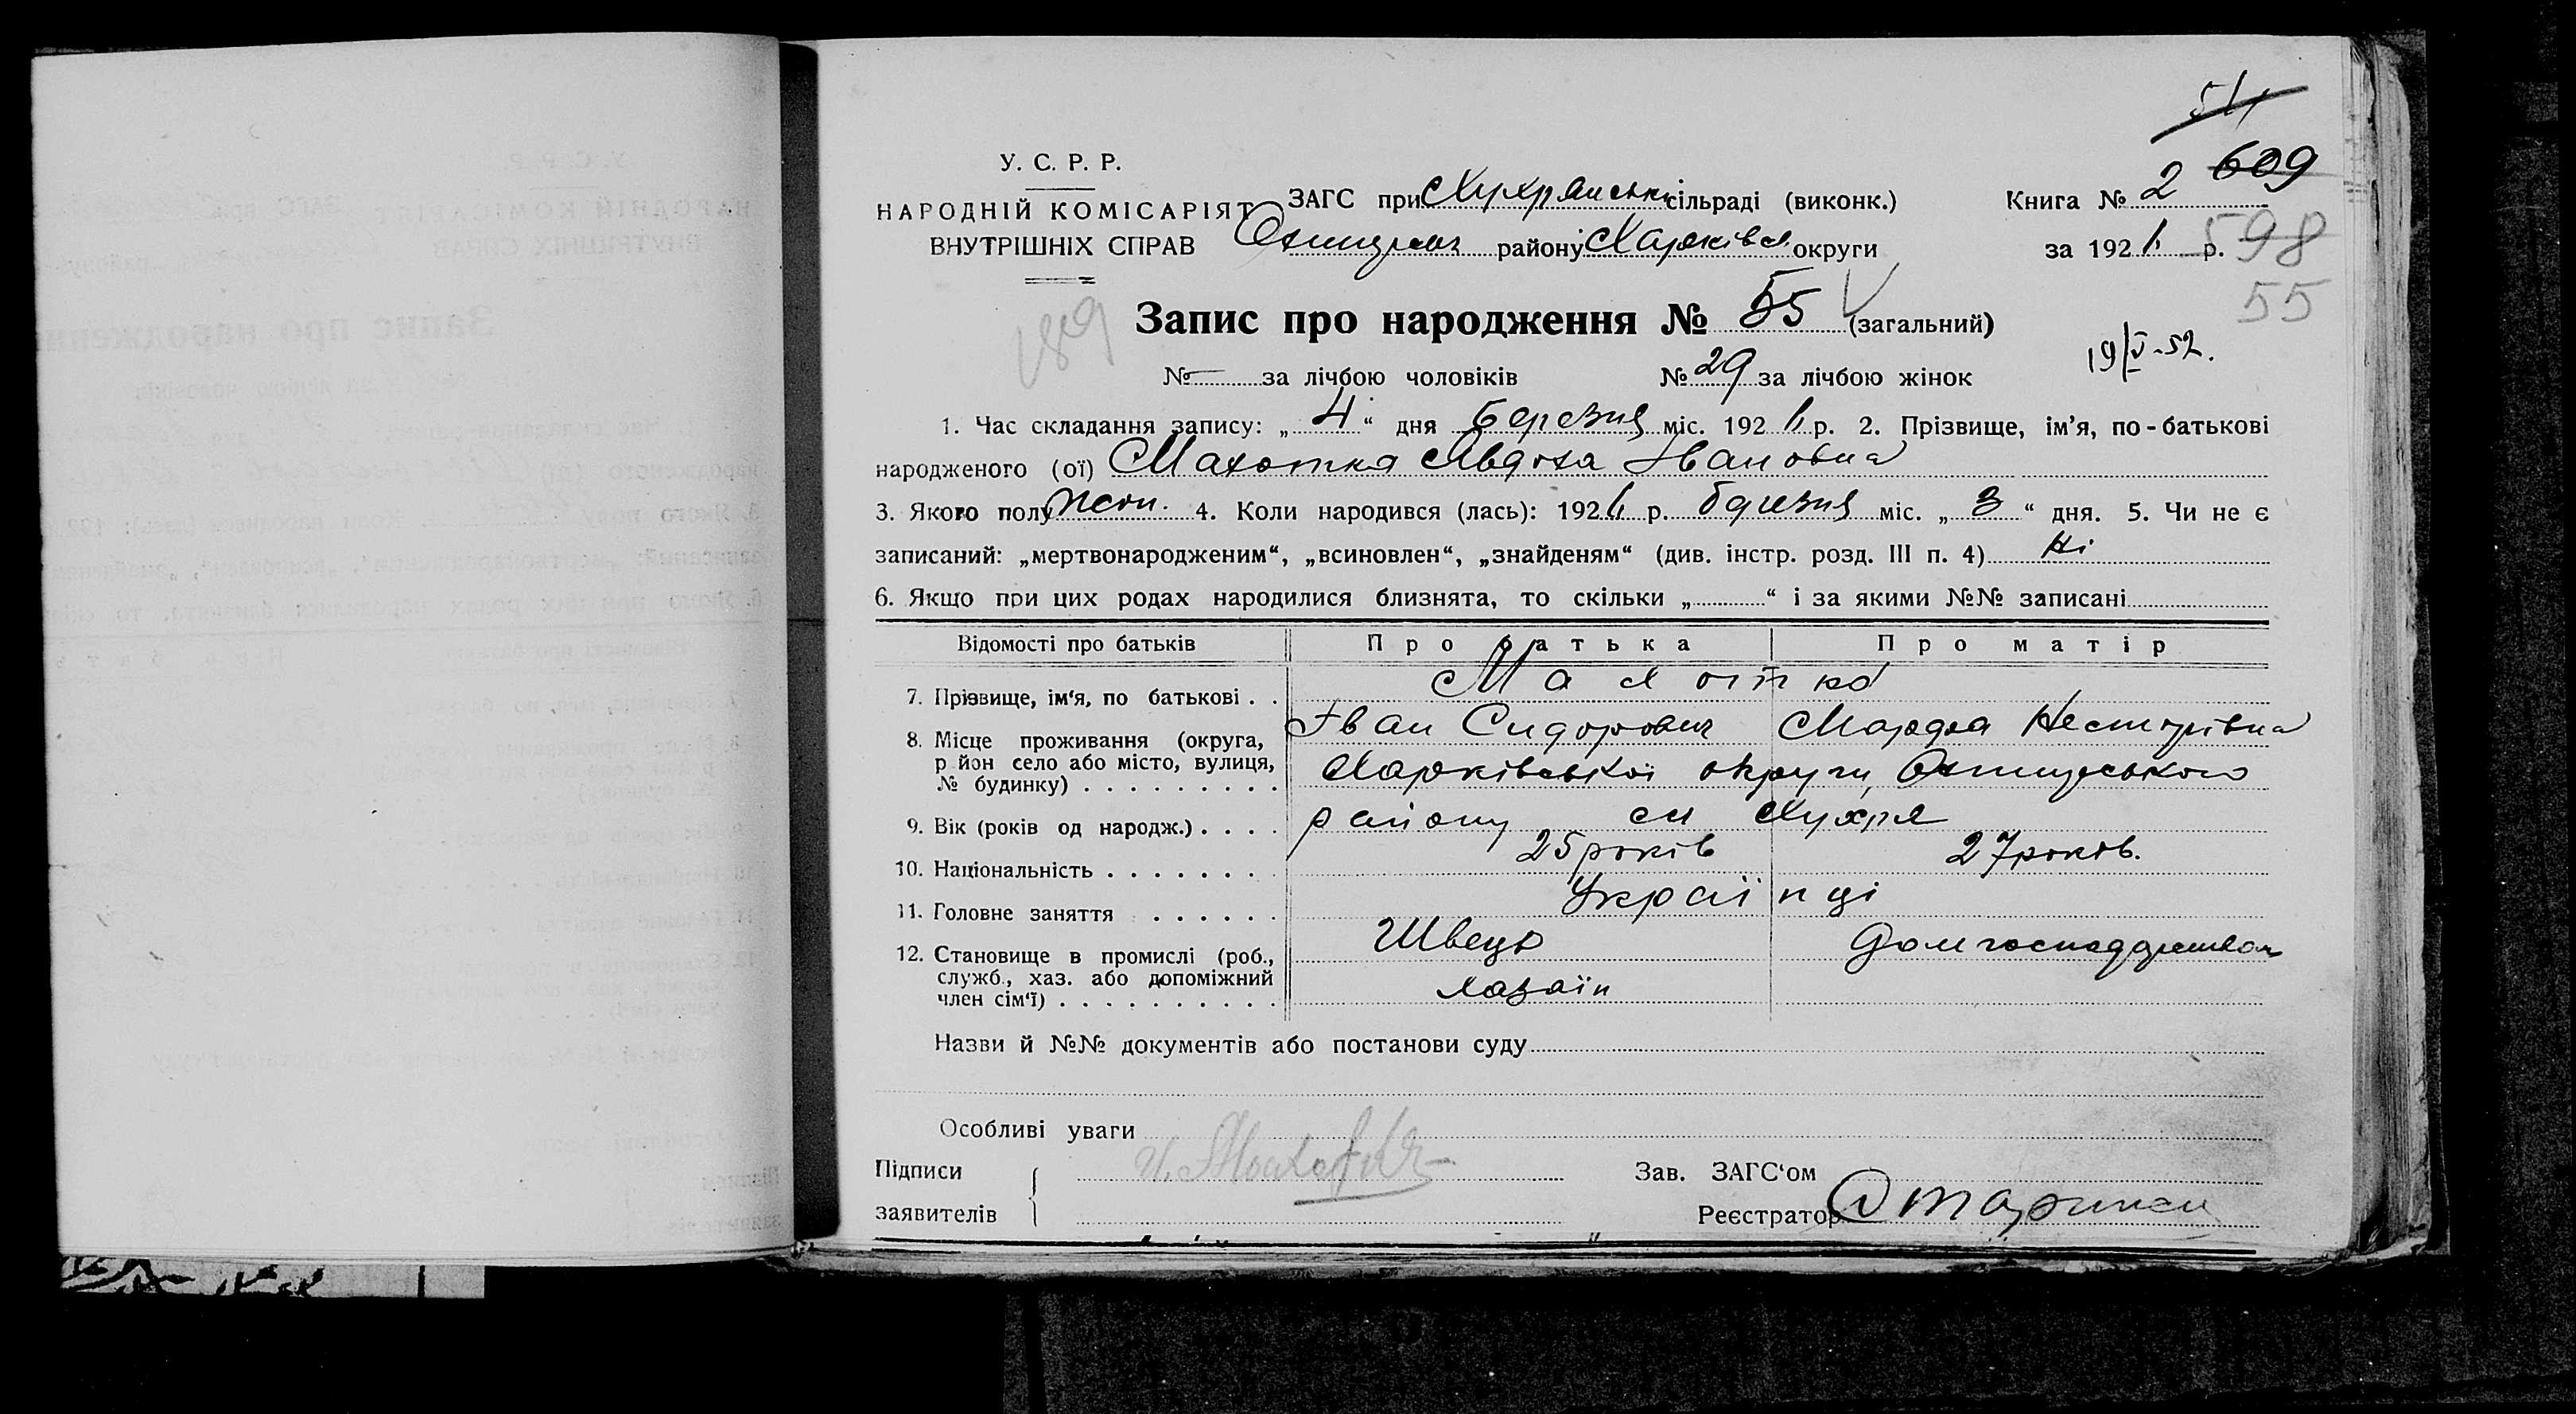 511
У. С. Р. Р.
НАРОДНІЙ КОМІСАРІЯТ
ВНУТРІШНІХ СПРАВ
ЗАГС при Хухрянські сільраді (виконк.)
району Харківс. округи
Книга № 2 609
за 192 р. 598
55
189
Запис про народження № 55 (загальний)
19/V-52.
№ — за лічбою чоловіків № 29 за лічбою жінок
1. Час складання запису: „ 4 “ дня Березня міс. 192 р. 2. Прізвище, ім’я, по-батькові
народженого (ої) Махотка Явдоха Івановна
3. Якого полу жін. 4. Коли народився (лась): 192 р. березня міс. „ 3 “ дня. 5. Чи не є
записаний: „мертвонародженим“, „всиновлен“, „знайденям“ (див. інстр. розд. III п. 4) Ні
6. Якщо при цих родах народилися близнята, то скільки „ “ і за якими №№ записані
Відомості про батьків Про батька Про матір
7. Прізвище, ім‘я, по батькові . . Махотка
Іван Сидорович Марфа Несторівна
8. Місце проживання (округа,
р йон село або місто, вулиця,
№ будинку) . . . . . . . . . Харківської округи, Охтирського
району Хухря
9. Вік (років од народж.) . . . . 25 років 27 років.
10. Національність . . . . . . . Українці
11. Головне заняття . . . . . . Швець
12. Становище в промислі (роб.,
служб., хаз. або допоміжний
член сім‘ї) . . . . . . . . . . хазаїн
Назви й №№ документів або постанови суду
Особливі уваги
Підписи
заявителів
Зав. ЗАГС‘ом
Реєстратор